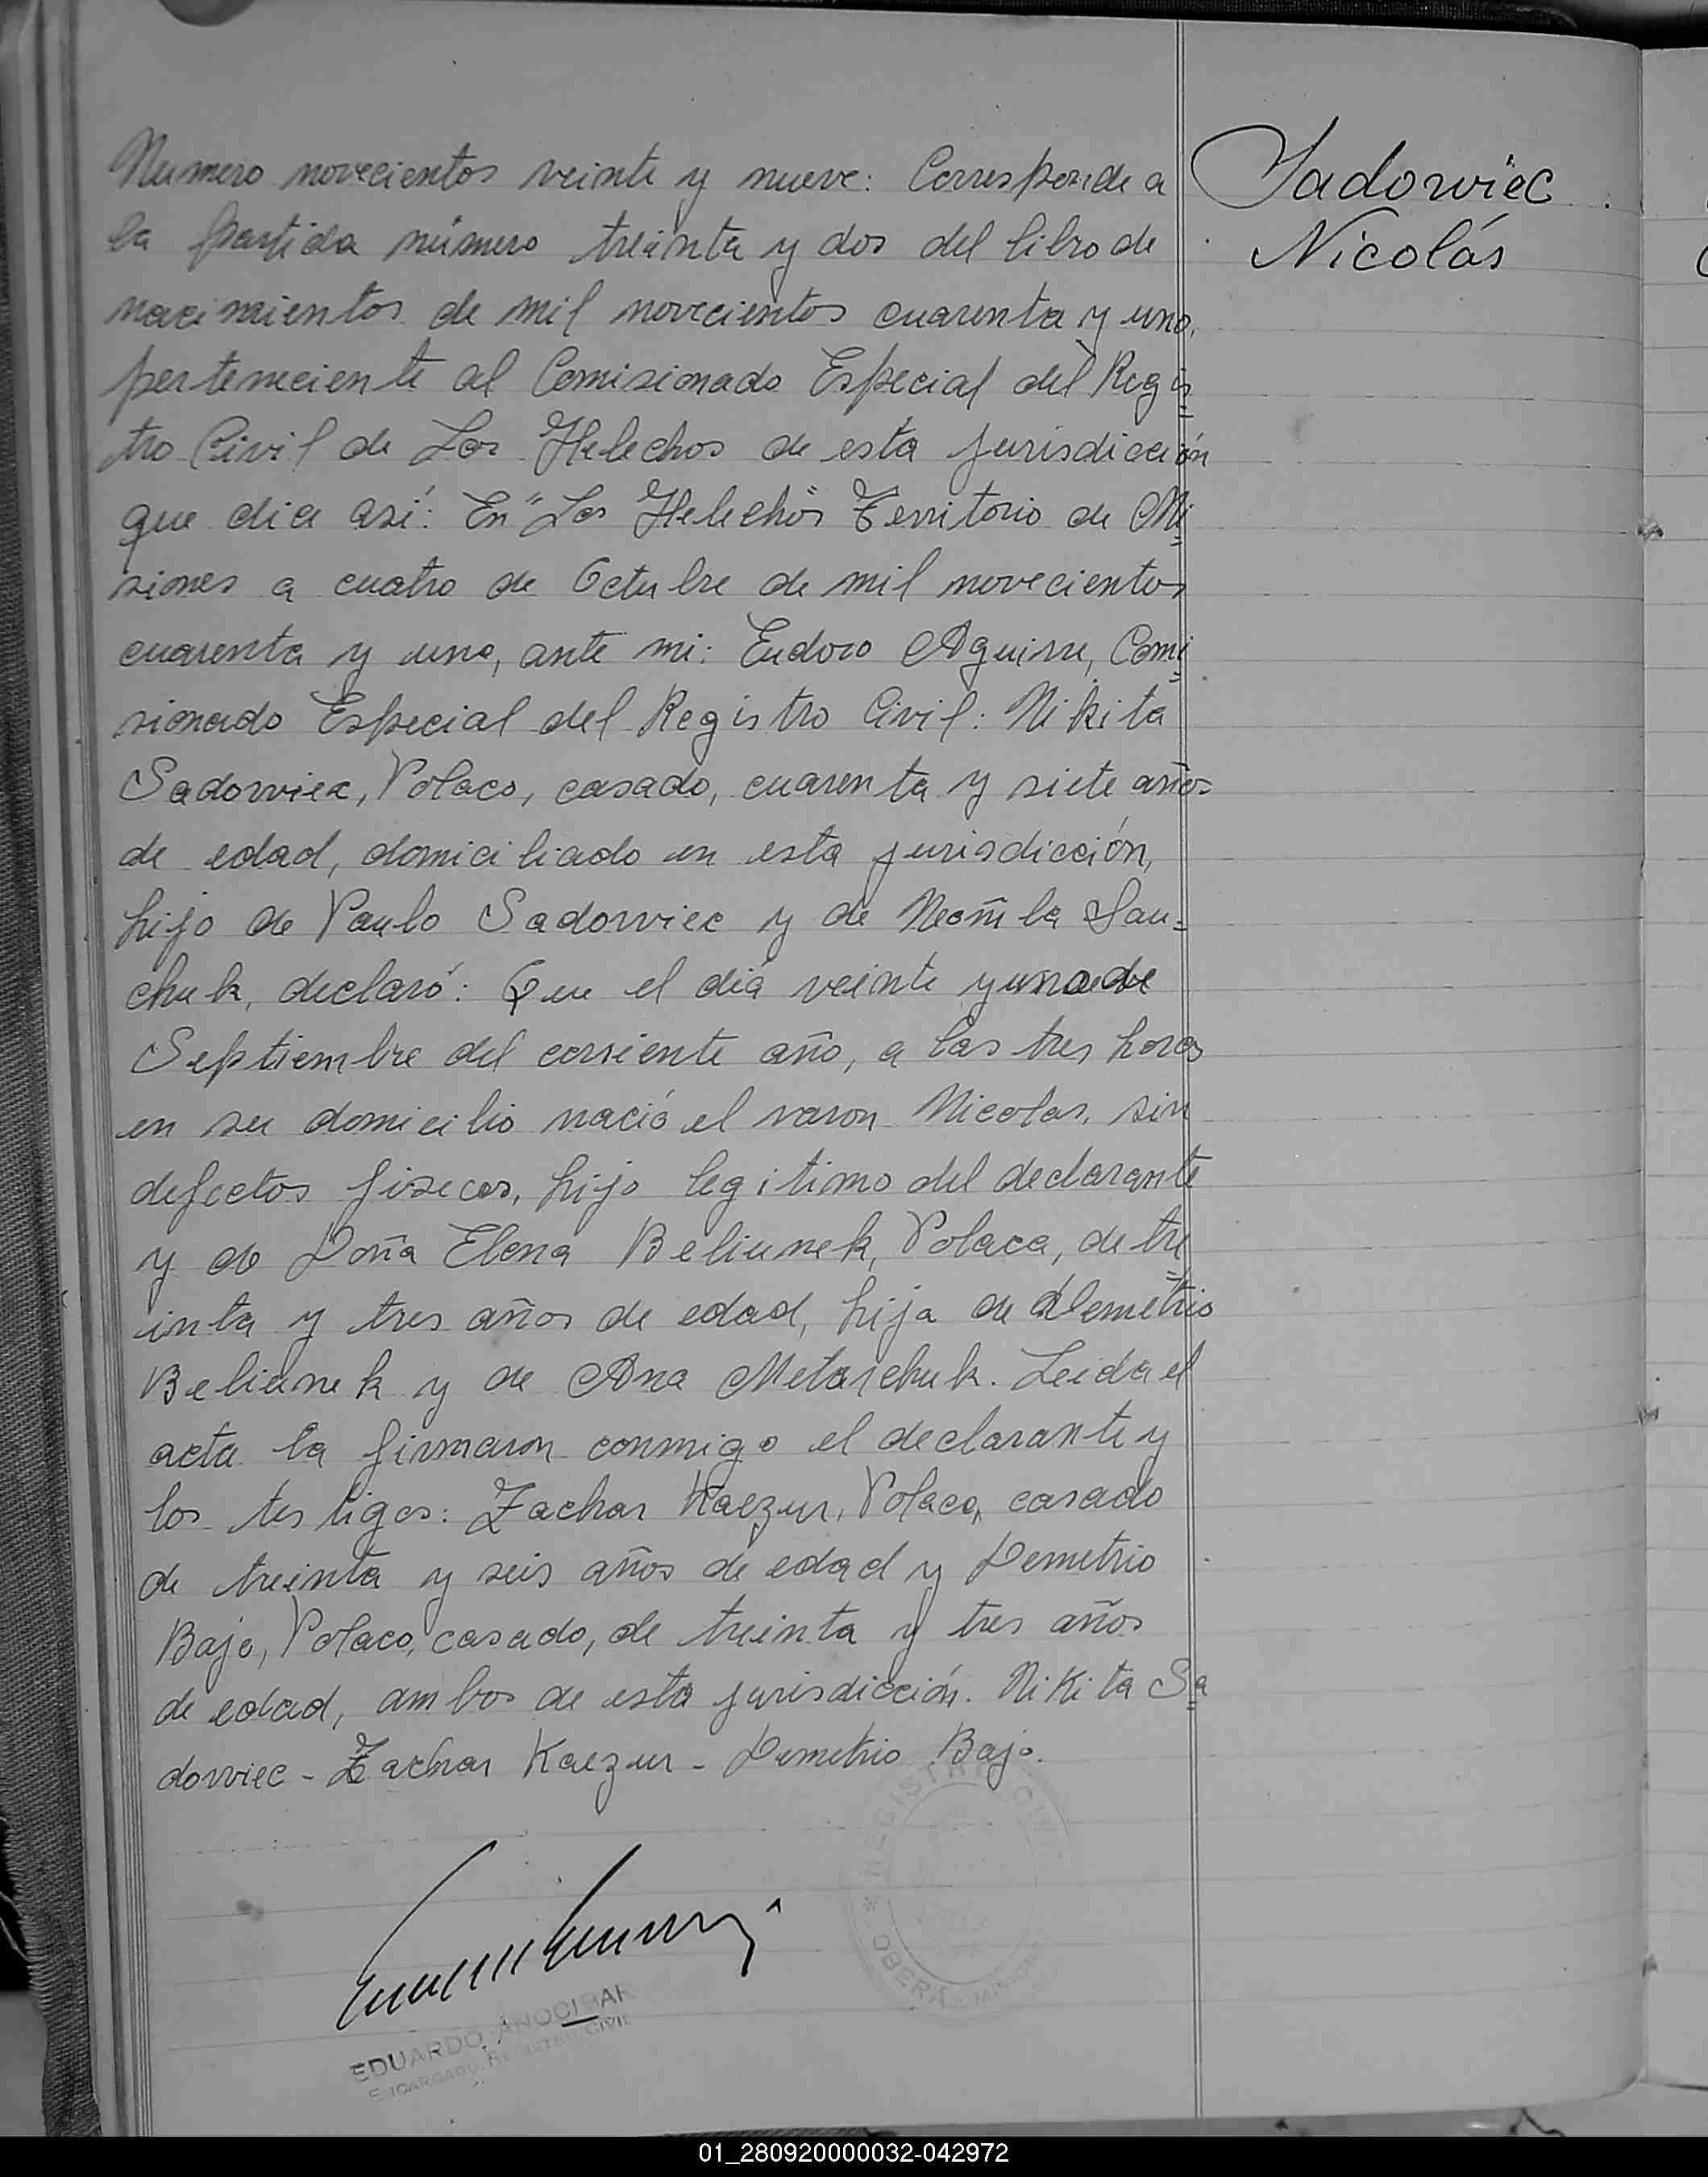 Numero novecientos veinte y nueve: Corresponde a
la partida número treinta y dos del libro de
nacimientos de mil novecientos cuarenta y uno,
perteneciente al Comisionado Especial del Regis
tro Civil de Los Helechos de esta jurisdicción
que dice así: En "Los Helechos" Territorio de Mi
siones a cuatro de Octubre de mil novecientos
cuarenta y uno, ante mi: Eudoro Aguirre, Comi
sionado Especial del Registro Civil: Nikita
Sadowiec, Polaco, casado, cuarenta y siete años
de edad, domiciliado en esta jurisdicción,
hijo de Paulo Sadowiec y de la Sau=
chuk, declaró: Que el día veinte y uno de
Septiembre del corriente año, a las tres horas
en su domicilio nació el varon Nicolas, sin
defectos fisecos, hijo legitimo del declarante
y de Doña Elena Beliunek, Polaca, de tre
inta y tres años de edad, hija de Demetrio
Beliunek y de Ana Metarchuk. Leida el
acta la firmaron conmigo el declarante y
los testigos: Zachar Kaezur, Polaco, casado
de treinta y seis años de edad y Demetrio
Bajo, Polaco, casado, de treinta y tres años
de edad, ambos de esta jurisdicción. Nikita Sa
dowiec - Zachar Kaezur - Demetrio Bajo.
Sadowiec
Nicolás
REGISTRO CIVIL
* OBERÁ - MISIONES
EDUARDO ANOCIBAR
ENCARGADO REGISTRO CIVIL
01_280920000032-042972